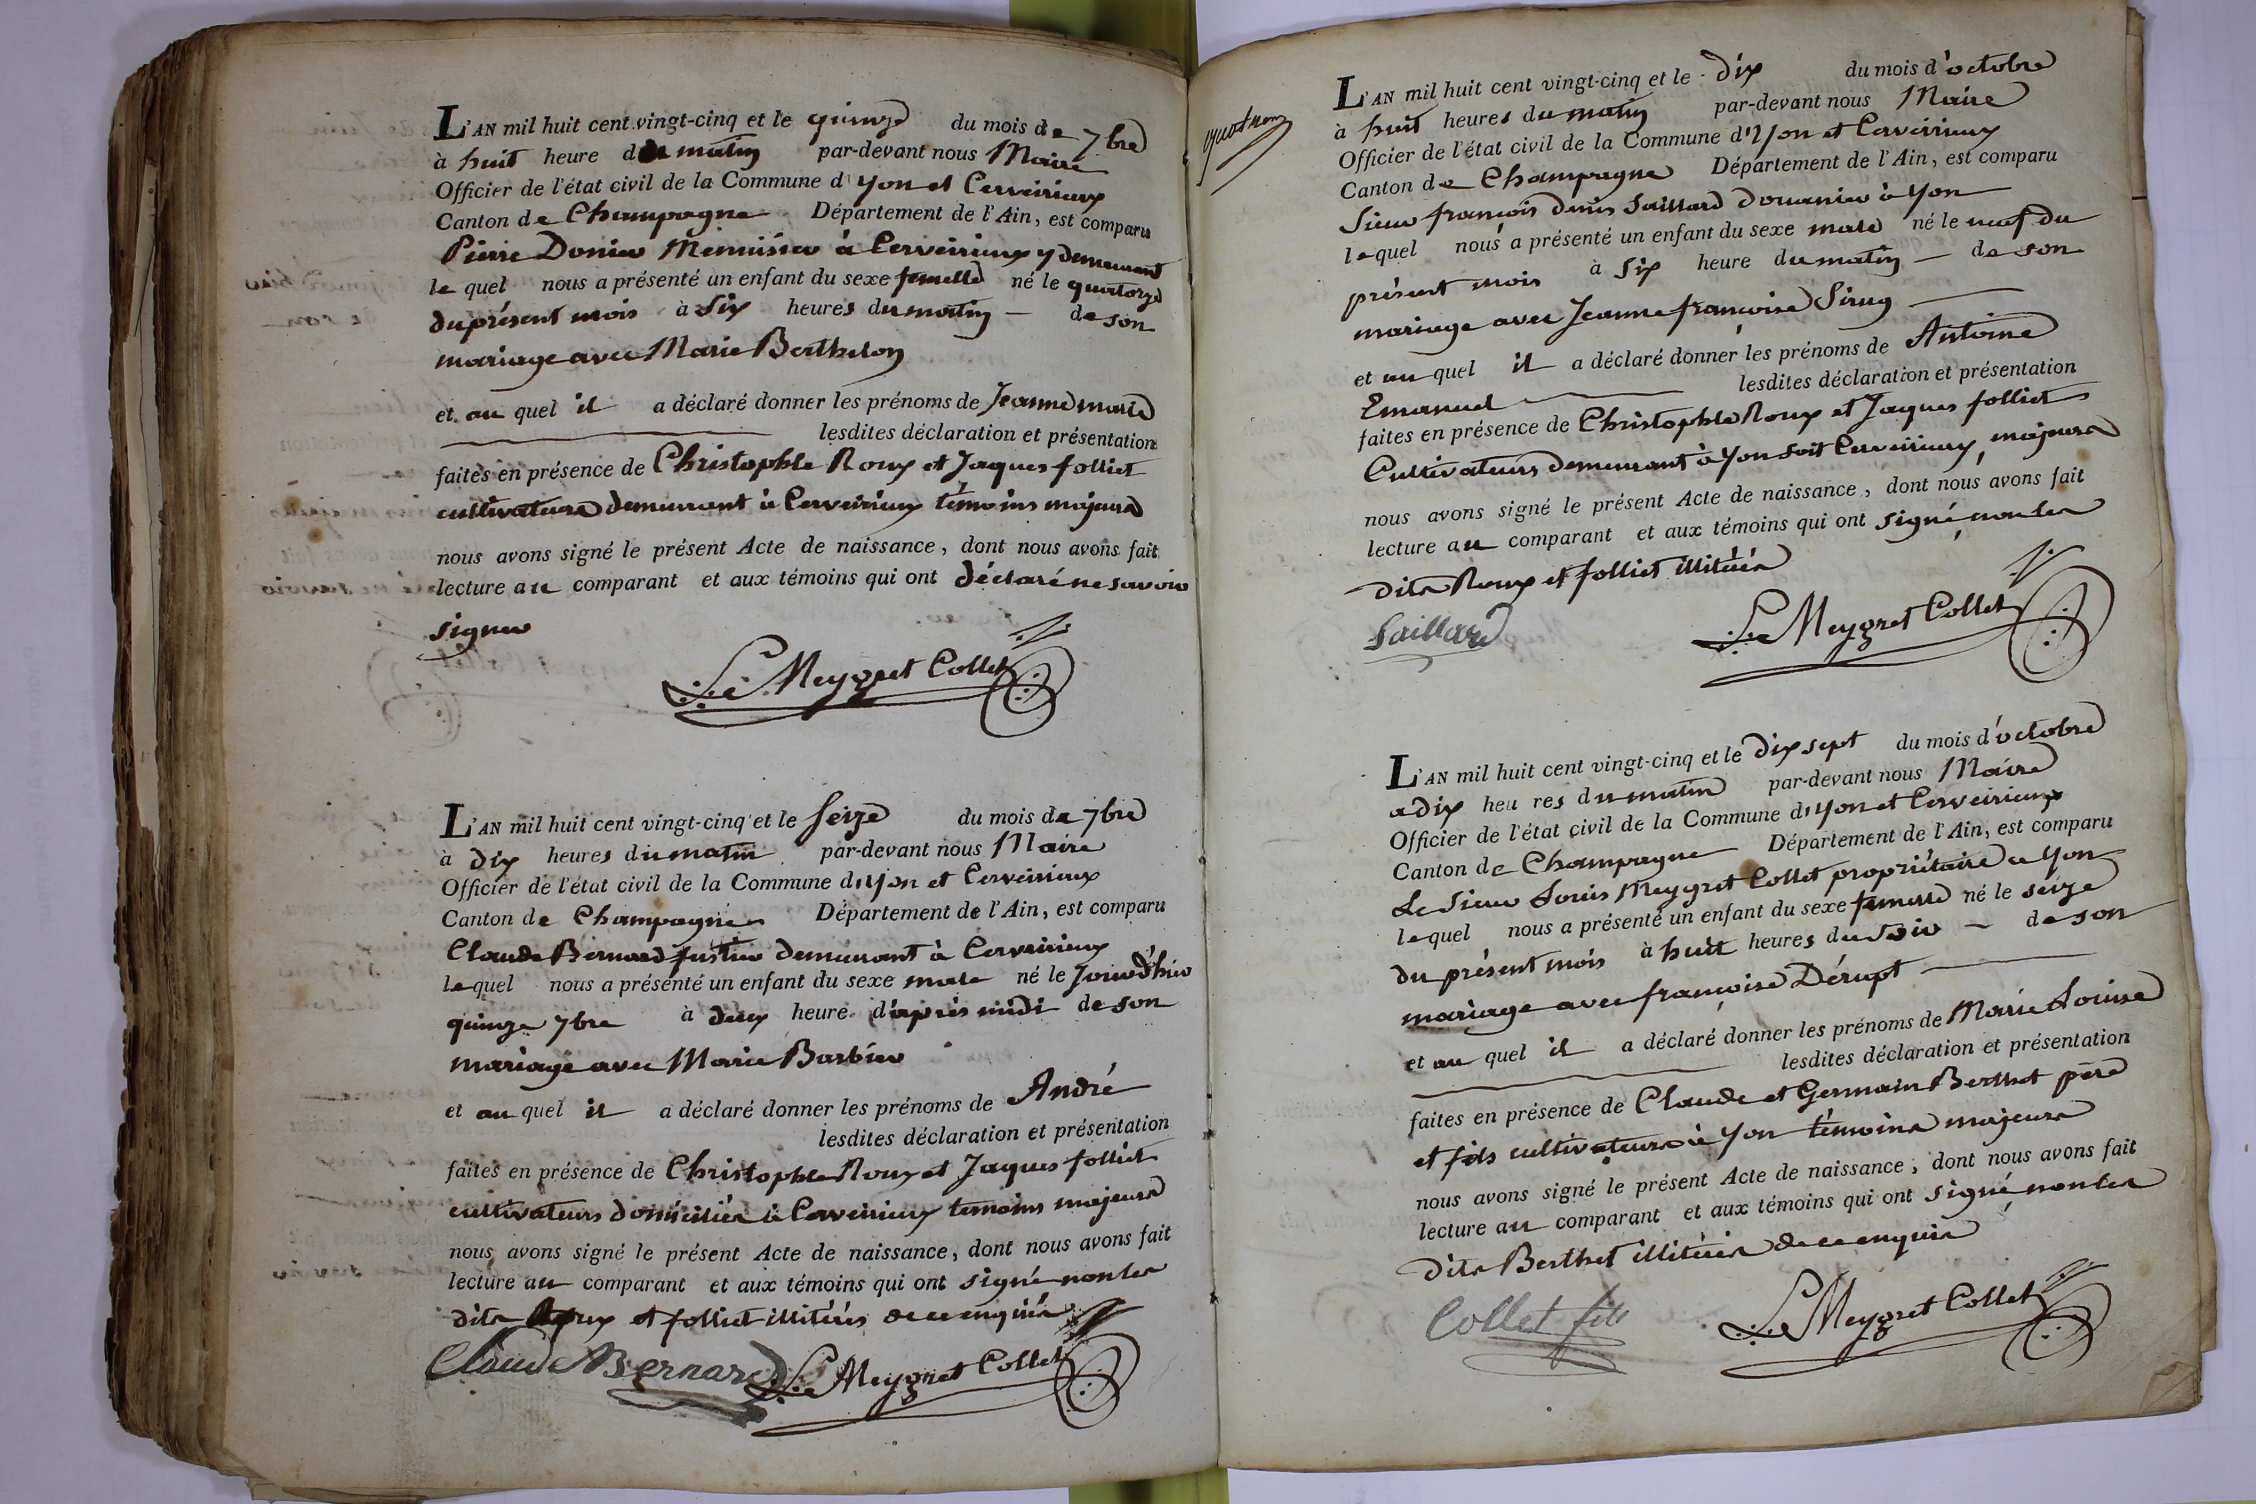 L'AN mil huit cent vingt-cinq et le quinze du mois de 7bre
à huit heure du matin par-devant nous Maire
Officier de l'état civil de la Commune d'yon et Cerveirieux
Canton de Champagne Département de l'Ain, est comparu
Pierre Donier Menuisier à Cerveirieux y demeurant
le quel nous a présenté un enfant du sexe femelle né le quatorze
du présent mois à six heures du matin — de son
mariage avec Marie Berthelon
et au quel il a déclaré donner les prénoms de Jeanne marie
lesdites déclaration et présentation
faites en présence de Christophle Roux et Jaques folliet
cultivateurs demeurant à Cerveirieux témoins majeurs
nous avons signé le présent Acte de naissance, dont nous avons fait
lecture au comparant et aux témoins qui ont déclaré ne savoir
signer
Le Meygret Collet
L'AN mil huit cent vingt-cinq et le seize du mois de 7bre
à dix heures du matin par-devant nous Maire
Officier de l'état civil de la Commune d'yon et Cerveirieux
Canton de Champagne Département de l'Ain, est comparu
Claude Bernard fustier demeurant à Cerveirieux
le quel nous a présenté un enfant du sexe male né le Jour d'hier
quinze 7bre à deux heure d'après midi de son
mariage avec Marie Barbier
et au quel il a déclaré donner les prénoms de André
lesdites déclaration et présentation
faites en présence de Christophle Roux et Jaques folliet
cultivateurs domiciliés à Cerveirieux temoins majeurs
nous avons signé le présent Acte de naissance, dont nous avons fait
lecture au comparant et aux témoins qui ont signé non les
dits Roux et folliet illitérés de ce enquis
Claude Bernard Le Meygret Collet
L'AN mil huit cent vingt-cinq et le dix du mois d'octobre
à huit heures du matin par-devant nous Maire
Officier de l'état civil de la Commune d'Yon et Cerveirieux
Canton de Champagne Département de l'Ain, est comparu
Sieur françois denis Saillard douanier à Yon
lequel nous a présenté un enfant du sexe male né le neuf du
présent mois à six heure du matin — de son
mariage avec Jeanne françoise Sirug
et au quel il a déclaré donner les prénoms de Antoine
Emanuel lesdites déclaration et présentation
faites en présence de Christophle Roux et Jaques folliet
Cultivateurs demeurant à Yon soit Cerveirieux, majeurs
nous avons signé le présent Acte de naissance, dont nous avons fait
lecture au comparant et aux témoins qui ont signé non les
dits Roux et folliet illitérés
Saillard Le Meygret Collet
L'AN mil huit cent vingt-cinq et le dix sept du mois d'octobre
a dix heures du matin par-devant nous Maire
Officier de l'état civil de la Commune d'yon et Cerveirieux
Canton de Champagne Département de l'Ain, est comparu
Le Sieur Louis Meygret Collet propriétaire a Yon
lequel nous a présenté un enfant du sexe femelle né le seize
du présent mois à huit heures du soir — de son
mariage avec françoise Dérupt
et au quel il a déclaré donner les prénoms de Marie Louise
lesdites déclaration et présentation
faites en présence de Claude et Germain Berthet père
et fils cultivateurs à Yon témoins majeurs
nous avons signé le présent Acte de naissance, dont nous avons fait
lecture au comparant et aux témoins qui ont signé non les
dits Berthet illitérés de ce enquis
Collet fils Le Meygret Collet